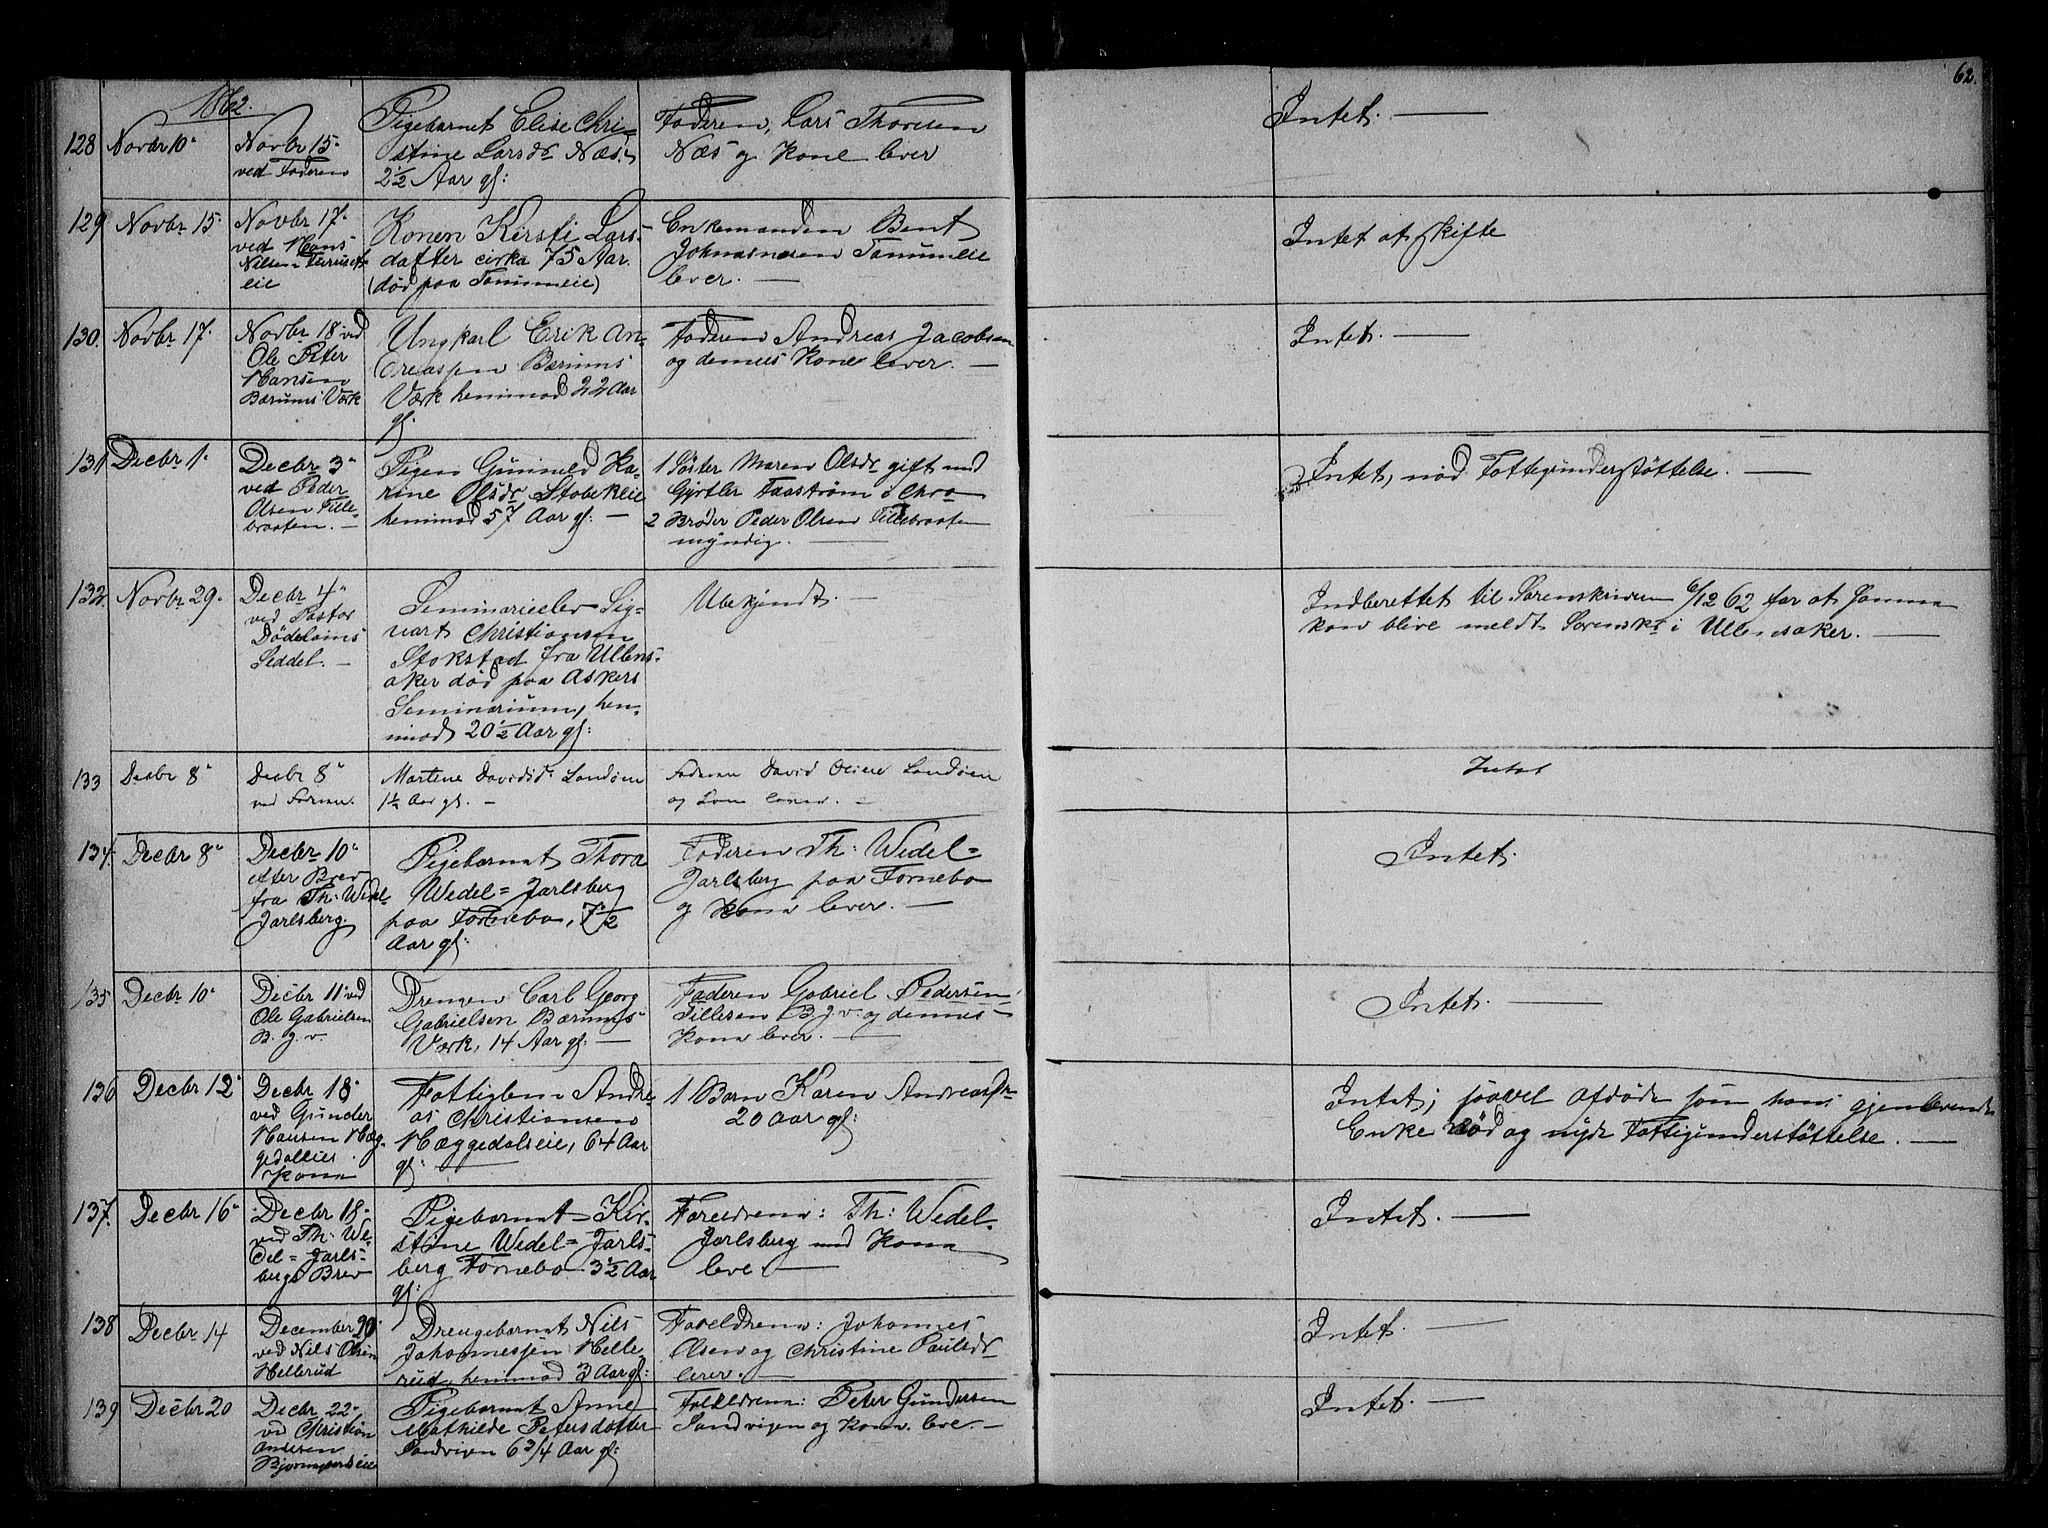 62.
1862.
128 Novbr 10. Novbr 15. ved Faderen
Pigebarnet Elise Chri-
stine Larsdr Næs.
2½ Aar gl:
Faderen, Lars Thoresen
Næs og Kone lever
Intet. —
129 Novbr 15. Novbr 17.
ved Hans
Nilsen
eie
Konen Kirsti Lars-
datter cirka 75 Aar.
(død paa Tanumeie)
Enkemanden Bent
Tanumeie
lever. —
Intet at skifte
130. Novbr 17. Novbr 18 ved
Ole Peter
Hansen
Bærums Værk
Ungkarl Erik An-
dreassen Bærums
Værk henimod 22 Aar
gl.
Faderen Andreas Jacobsen
og dennes Kone lever. —
Intet. —
131 Decbr 1. Decbr 3
ved Peder
Olsen Tille-
braaten. —
Pigen Gunnild Ka-
rine Olsdr
henimod 57 Aar gl: —
1 Søster Maren Olsdr gift med
Gjørtler i Chra
2 Broder Peder Olsen Tillebraaten
myndig. —
Intet, nød Fattigunderstøttelse. —
132. Novbr 29. Decbr 4
ved Pastor
Seddel. —
Seminarieelev Sig-
vart Christiansen
Stokstad fra Ullens-
aker død paa Askers
Seminarium, hen-
imod 20½ Aar gl:
Ubekjendt. —
Indberettet til Sorenskriveren 6/12 62 for at Samme
kan blive meldt Sorenskr i Ullensaker. —
133 Decbr 8 Decbr 8
ved Faderen.
Martine Davidsd. Landøen
1½ Aar gl. —
Faderen David Olsen Landøen
og Kone lever. —
Intet
134. Decbr 8 Decbr 10
efter Brev
fra Th: Wedel
Jarlsberg
Pigebarnet Thora
Wedel=Jarlsberg
paa Fornebo, 7½
Aar gl:
Faderen Th: Wedel=
Jarlsberg paa Fornebo
og Kone lever. —
Intet.
135 Decbr 10 Decbr 11 ved
Ole Gabrielsen
B. g. v.
Drengen Carl Georg
Gabrielsen Bærums
Værk, 14 Aar gl: —
Faderen Gabriel Pedersen
B. g. v. og dennes
Kone lever. —
Intet. —
136 Decbr 12 Decbr 18
ved Gunder
Hansen Hæg-
gedalseies
Kone
Fattiglem Andre-
as Christiansen
Hæggedalseie, 64 Aar
gl: —
1 Barn Karen Andreasdr
20 Aar gl:
Intet; saavel Afdøde som hans gjenlevende
Enke nød og nyde Fattigunderstøttelse. —
137. Decbr 16 Decbr 18
ved Th: We-
del=Jarls-
bergs Brev
Pigebarnet Kir-
stine Wedel=Jarls-
berg Fornebo 3½ Aar
gl:
Foreldrene: Th: Wedel-
Jarlsberg med Kone
leve. —
Intet. —
138 Decbr 14 December 20
ved Nils Olsen
Hellerud
Drengebarnet Nils
Johannessen Helle-
rud, henimod 3 Aar gl:
Foreldrene: Johannes
Olsen og Christine Paulsdr
lever. —
Intet. —
139 Decbr 20 Decbr 22
ved Christian
Andersen
Pigebarnet Anne
Mathilde Petersdatter
Sandvigen 6 3/4 Aar gl:
Foreldrene: Peter Gundersen
Sandvigen og Kone leve. —
Intet. —